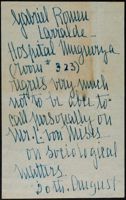 Gabriel Romeu
Larralde
Hospital Muguruza
(Room # 323)
regrets very much
not to be able to
call personally on
Mr. L. von Mises
on sociological
matters.
30th. August